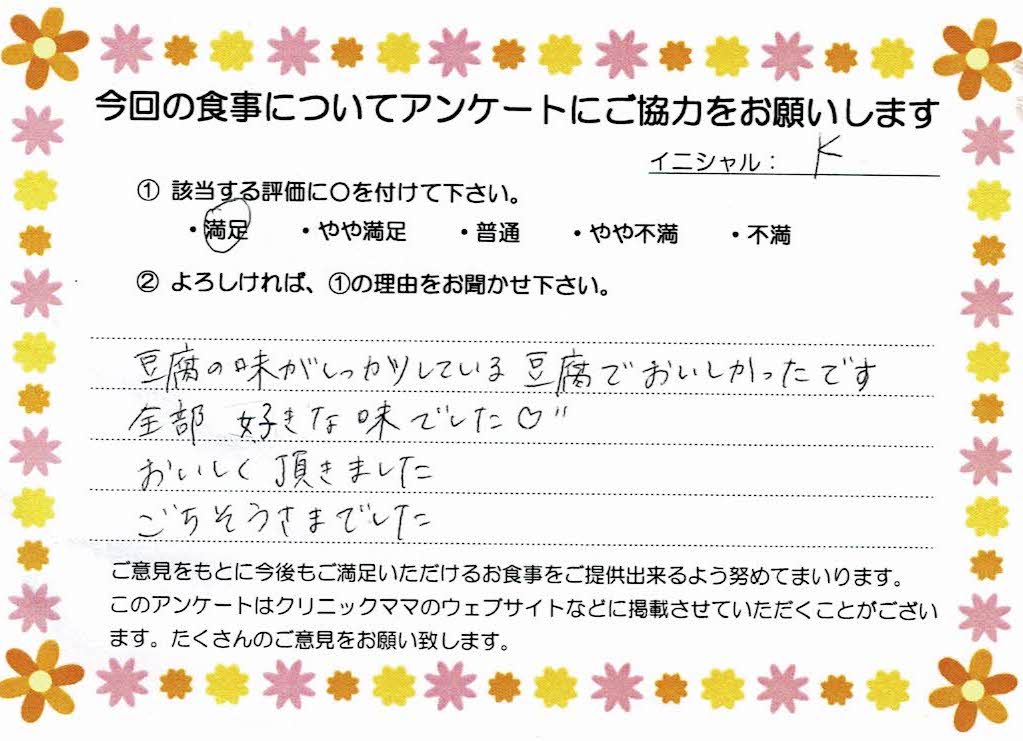 今回の食事についてアンケートにご協力をお願いします
イニシャル： K
① 該当する評価に○を付けて下さい。
・満足 ・やや満足 ・普通 ・やや不満 ・不満
② よろしければ、①の理由をお聞かせ下さい。
豆腐の味がしっかりしている豆腐でおいしかったです
全部 好きな味でした♡〃
おいしく頂きました
ごちそうさまでした
ご意見をもとに今後もご満足いただけるお食事をご提供出来るよう努めてまいります。
このアンケートはクリニックママのウェブサイトなどに掲載させていただくことがござい
ます。たくさんのご意見をお願い致します。